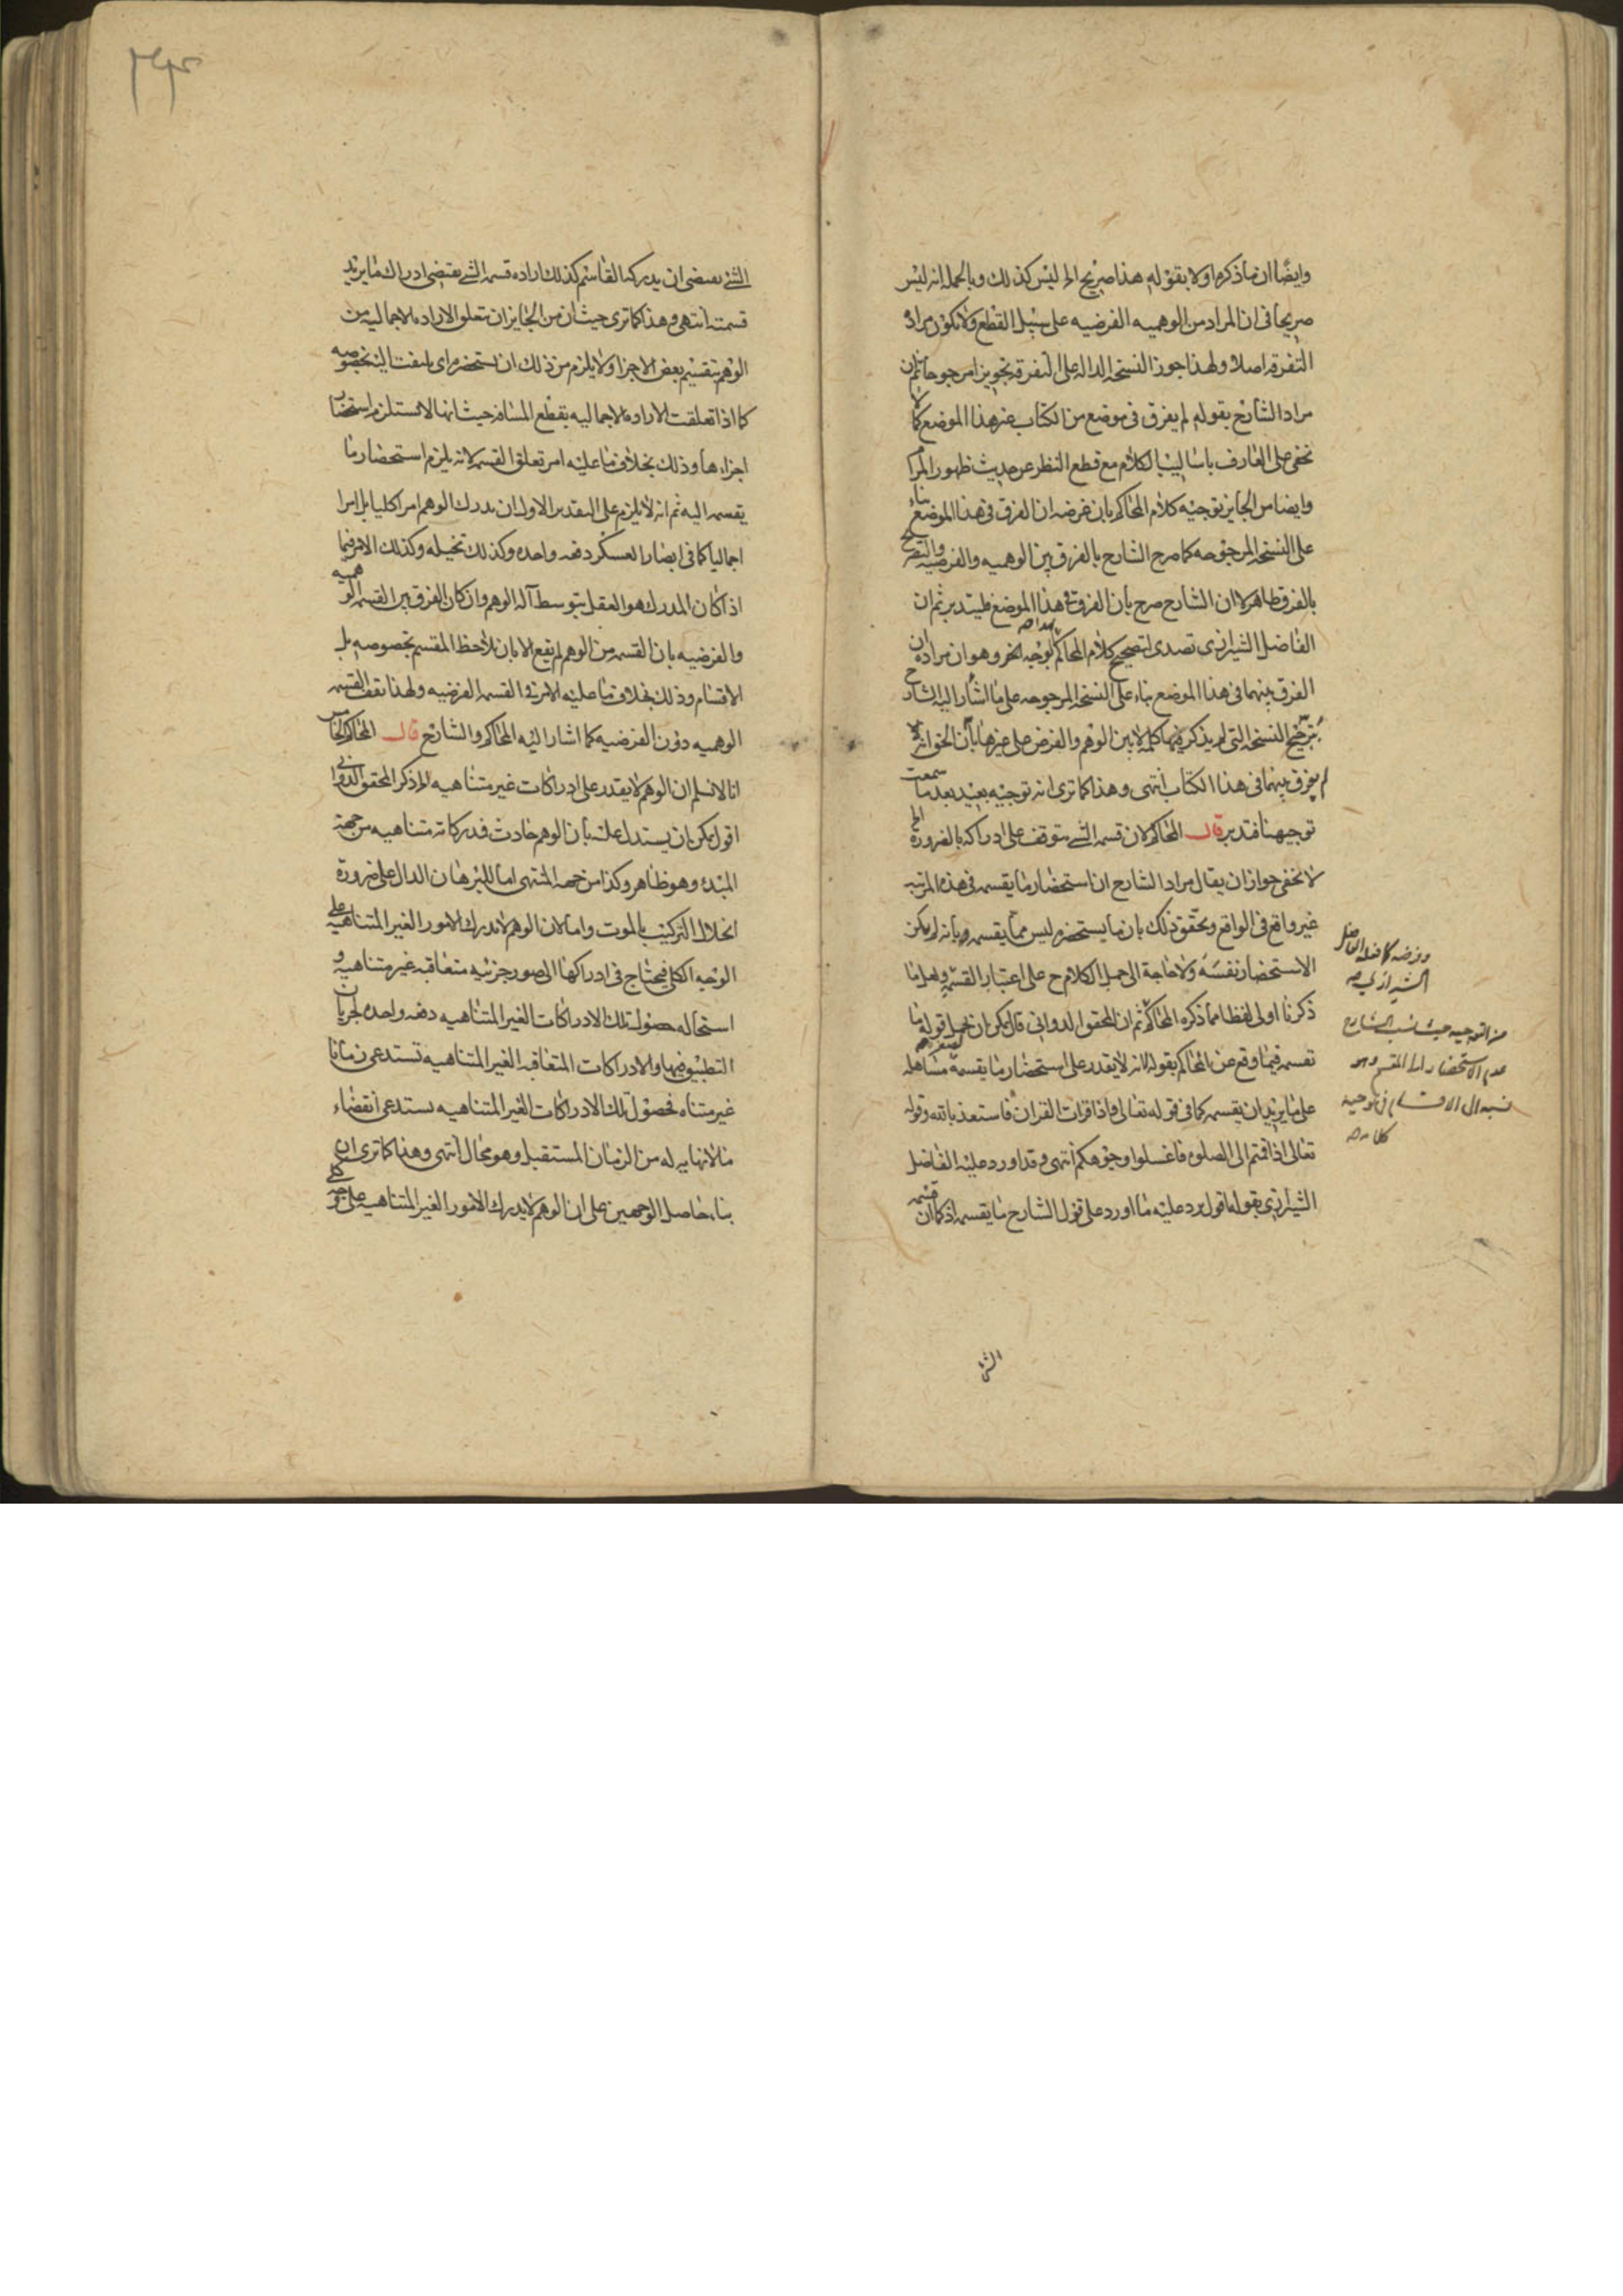 وايضًا ان ما ذكره اولا بقوله هذا صريح الخ ليس كذلك وبالجمله انه ليس
صريحا فى ان المراد من الوهميه الفرضيه على سبيل القطع ولا يكون مراده
التفرقه اصلا ولهذا جوز النسخه الداله على التفرقه تجويزا مرجوحا ثم ان
مراد الشارح بقوله لم يفرق فى موضع من الكتاب غير هذا الموضع كما لا
يخفى على العارف باساليب الكلام مع قطع النظر عن حديث ظهور المراد
وايضا من الجايز توجيه كلام المحاكم بان غرضه ان الفرق فى هذا الموضع بناء
على النسخه المرجوحه كما صرح الشارح بالفرق بين الوهميه والفرضيه والتصريح
بالفرق ظاهر لا ان الشارح صرح بان الفرق فى هذا الموضع فليتدبر ثم ان
الفاضل الشيرازى تصدى لتصحيح كلام المحاكم بوجه اخر وهو ان مراده ان
الفرق بينهما فى هذا الموضع بناء على النسخه المرجوحه على ما اشار اليه الشارح
بترجيح النسخه التى لم يذكر فيها كلمه لا بين الوهم والفرض على غيرها بان الحق انه
لم يفرق بينهما فى هذا الكتاب انتهى وهذا كما ترى انه توجيه بعيد بعد ما سمعت
توجيهنا فتدبر قال المحاكم لان قسمه الشى متوقف على ادراكه بالضرورة الخ
لا يخفى جواز ان يقال مراد الشارح ان استحضار ما يقسمه فى هذه المرتبه
غير واقع فى الواقع ويحقق ذلك بان ما يستحضره ليس مما يقسمه وبانه لم يكن
الاستحضار نفسه ولا حاجة الى حمل الكلام ح على اعتبار القسم ولعل ما
ذكرنا اولى لفظا مما ذكره المحاكم ثم ان المحقق الدوانى قال يمكن ان يحمل قوله ما
تقسمه فيما وقع عن المحاكم بقوله لانه لا يقدر على استحضار ما يقسمه مساهله
على ما يريد ان يقسمه كما فى قوله تعالى فاذا قرات القران فاستعذ بالله وقوله
تعالى اذا قمتم الى الصلوه فاغسلوا وجوهكم انتهى وقد اورد عليه الفاضل
الشيرازى بقوله اقول يرد عليه ما اورد على قول الشارح ما يقسمه اذ كما ان قسمه
الفاضل
الشيرازى
من التوجيه حيث نسب الشارح
عدم الاستحضار الى المقسم وهو
نسبه الى الاقسام فى توجيه
كلامه
الشى
الشى يقتضى ان يدركه القاسم كذلك اراده قسمه الشى يقتضى ادراك ما يريد
قسمته انتهى وهذا كما ترى حيث ان من الجايز ان تتعلق الاراده الاجماليه من
الوهم بتقسيم بعض الاجزا ولا يلزم من ذلك ان يستحضره اى يلتفت اليه بخصوصه
كما اذا تعلقت الاراده الاجماليه بقطع المسافه حيث انها لا تستلزم استحضار
اجزاءها وذلك بخلاف ما عليه امر تعلق القسمه لانه يلزم استحضار ما
يقسمه اليه ثم انه لا يلزم على التقدير الاول ان يدرك الوهم امرا كليا بل امرا
اجماليا كما فى ابصار العسكر دفعه واحده وكذلك تخيله وكذلك الامر فيما
اذا كان المدرك هو العقل بتوسط آله الوهم وان كان الفرق بين القسمه الوهميه
والفرضيه بان القسمه من الوهم لم يقع الا بان يلاحظ المقسم بخصوصه بل
الاقسام وذلك بخلاف ما عليه الامر فى القسمه الفرضيه ولهذا يقف القسمه
الوهميه دون الفرضيه كما اشار اليه المحاكم والشارح قال المحاكم الخامس
انا لا نسلم ان الوهم لا يقدر على ادراكات غير متناهيه الخ ذكر المحقق الدوانى
اقول يمكن ان يستدل عليه بان الوهم حادث فمدركاته متناهيه من جهة
المبدء وهو ظاهر وكذا من جهه المنتهى اما للبرهان الدال على ضرورة
انحلال التركيب بالموت واما لان الوهم لا يدرك الامور الغير المتناهيه على
الوجه الكلى فيحتاج فى ادراكها الى صور جزئيه متعاقبه غير متناهيه و
استحاله حصول تلك الادراكات الغير المتناهيه دفعه واحده لجريان
التطبيق فيها والادراكات المتعاقبه الغير المتناهيه تستدعى زمانا
غير متناه فحصول تلك الادراكات الغير المتناهيه يستدعى انقضاء
ما لا نهايه له من الزمان المستقبل وهو محال انتهى وهذا كما ترى ان
بناء حاصل الوجهين على ان الوهم لا يدرك الامور الغير المتناهيه على وجه كلى